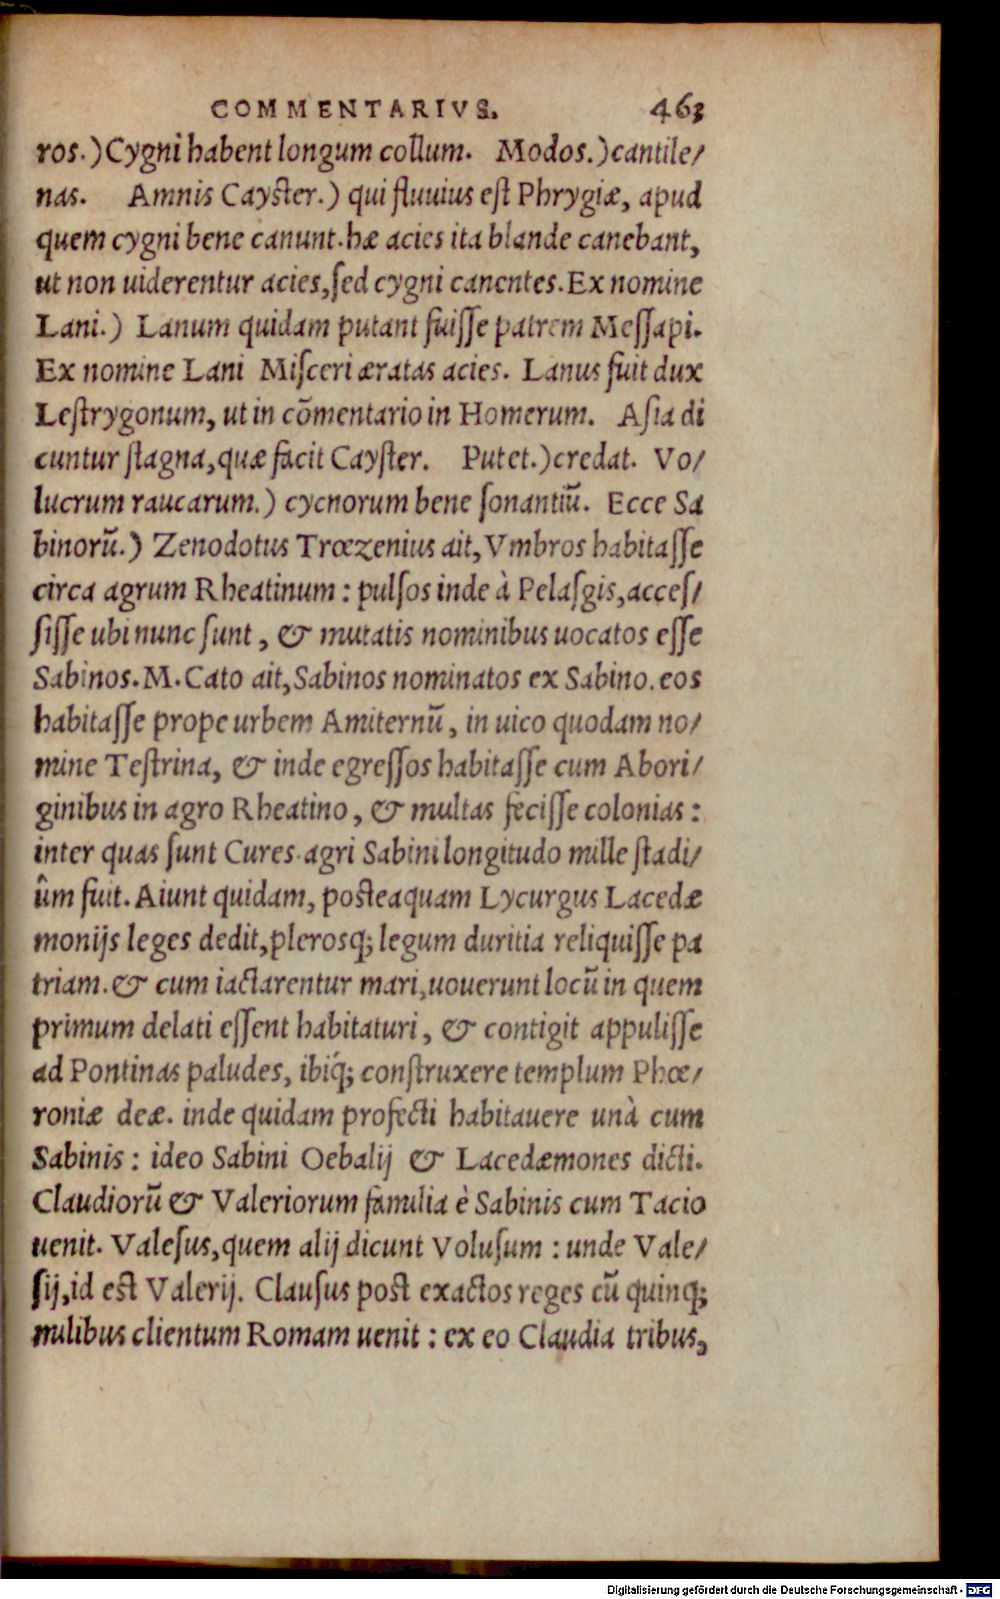 COMMENTARIVS. 463
ros.) Cygni habent longum collum. Modos.) cantile/
nas. Amnis Cayster.) qui fluuius est Phrygiæ, apud
quem cygni bene canunt. hæ acies ita blande canebant,
ut non uiderentur acies, sed cygni canentes. Ex nomine
Lani.) Lanum quidam putant fuisse patrem Messapi.
Ex nomine Lani Misceri æratas acies. Lanus fuit dux
Lestrygonum, ut in cōmentario in Homerum. Asia di
cuntur stagna, quæ facit Cayster. Putet.) credat. Vo/
lucrum raucarum.) cycnorum bene sonantiū. Ecce Sa
binorū.) Zenodotus Trœzenius ait, Vmbros habitasse
circa agrum Rheatinum : pulsos inde à Pelasgis, acces/
sisse ubi nunc sunt, & mutatis nominibus uocatos esse
Sabinos. M. Cato ait, Sabinos nominatos ex Sabino. eos
habitasse prope urbem Amiternū, in uico quodam no/
mine Testrina, & inde egressos habitasse cum Abori/
ginibus in agro Rheatino, & multas fecisse colonias :
inter quas sunt Cures. agri Sabini longitudo mille stadi/
ûm fuit. Aiunt quidam, posteaquam Lycurgus Lacedæ
monijs leges dedit, plerosq; legum duritia reliquisse pa
triam. & cum iactarentur mari, uouerunt locū in quem
primum delati essent habitaturi, & contigit appulisse
ad Pontinas paludes, ibiq́; construxere templum Phœ/
roniæ deæ. inde quidam profecti habitauere unà cum
Sabinis : ideo Sabini Oebalij & Lacedæmones dicti.
Claudiorū & Valeriorum familia è Sabinis cum Tacio
uenit. Valesus, quem alij dicunt Volusum : unde Vale/
sij, id est Valerij. Clausus post exactos reges cū quinq;
milibus clientum Romam uenit : ex eo Claudia tribus,
Digitalisierung gefördert durch die Deutsche Forschungsgemeinschaft - DFG